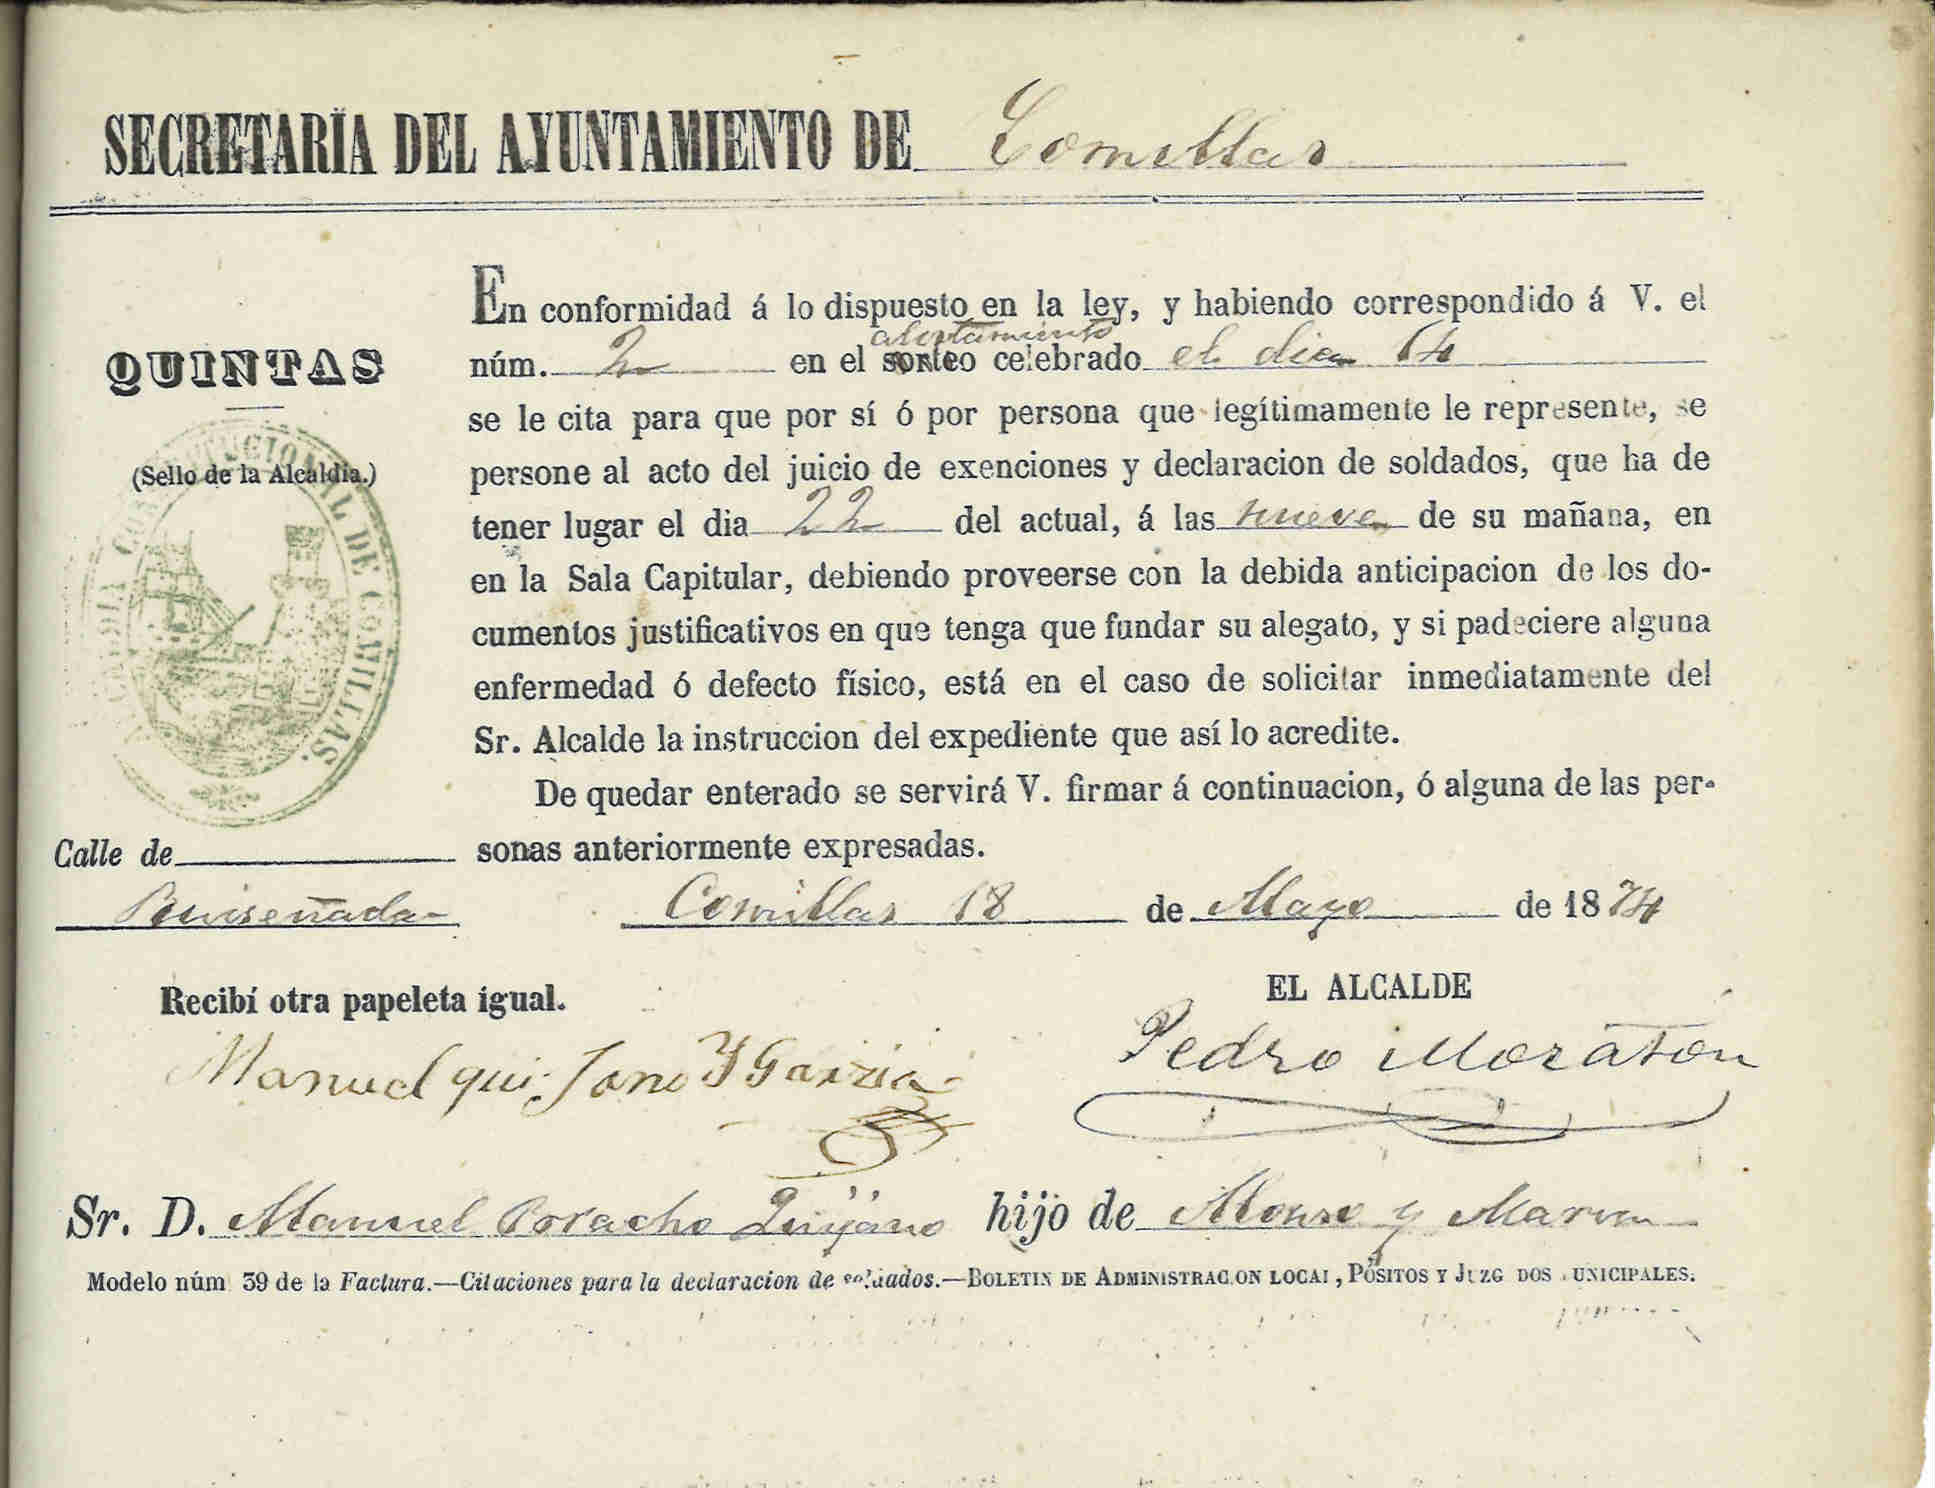 SECRETARÍA DEL AYUNTAMIENTO DE Comillas
QUINTAS
(Sello de la Alcaldia.)
ALCALDIA CONSTITUCIONAL DE COMILLAS.
En conformidad á lo dispuesto en la ley, y habiendo correspondido á V. el
alistamiento
núm. 2 en el sorteo celebrado el dia 14
se le cita para que por sí ó por persona que legítimamente le represente, se
persone al acto del juicio de exenciones y declaracion de soldados, que ha de
tener lugar el dia 22 del actual, á las nueve de su mañana, en
en la Sala Capitular, debiendo proveerse con la debida anticipacion de los do-
cumentos justificativos en que tenga que fundar su alegato, y si padeciere alguna
enfermedad ó defecto físico, está en el caso de solicitar inmediatamente del
Sr. Alcalde la instruccion del expediente que así lo acredite.
De quedar enterado se servirá V. firmar á continuacion, ó alguna de las per-
sonas anteriormente expresadas.
Calle de
Ruiseñada
Comillas 18 de Mayo de 1874
Recibí otra papeleta igual.
EL ALCALDE
Manuel qui Jano Y Garzia
Pedro Moraton
Sr. D. Manuel Quijano hijo de Alonso y Maria
Modelo núm 39 de la Factura.—Citaciones para la declaracion de soldados.—BOLETIN DE ADMINISTRACION LOCAL, PÓSITOS Y JUZGADOS MUNICIPALES.